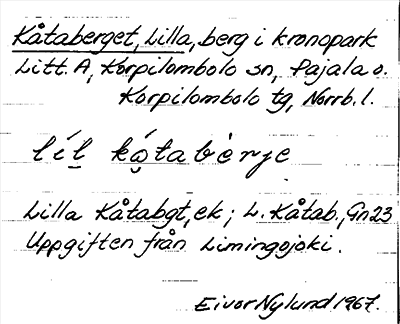 Kåtaberget, Lilla, berg i kronopark
Litt. A, Korpilombolo sn, Pajala o.
Korpilombolo tg, Norrb. l.
líl̥ kó̥tabèrje
Lilla Kåtabgt, ek; L. Kåtab., Gn 23
Uppgiften från Limingojoki.
Eivor Nylund 1967.